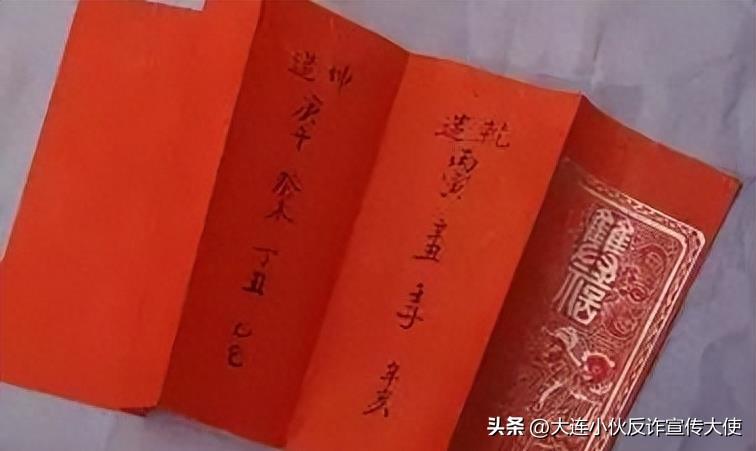 乾造
丙寅 辛丑 壬子 辛亥
坤造
庚午 癸未 丁丑 乙巳
头条 @大连小伙反诈宣传大使